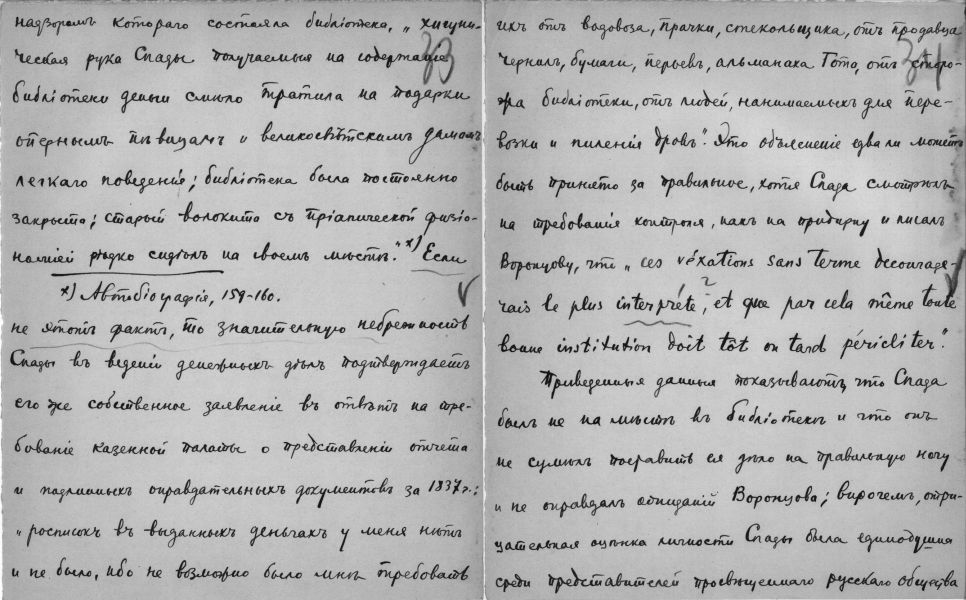 надзоромъ котораго состояла библіотека, „хищни-
ческая рука Спады получаемыя на содержаніе
библіотеки деньги смѣло тратила на подарки
опернымъ пѣвицамъ и великосвѣтскимъ дамамъ
легкаго поведенія; библіотека была постоянно
закрыта; старый волокита съ пріапической физіо-
номіей рѣдко сидѣлъ на своемъ мѣстѣ."*) Если
*) Автобіографія, 159-160.
не этотъ фактъ, то значительную небрежность
Спады въ веденіи денежныхъ дѣлъ подтверждаетъ
его же собственное заявленіе въ отвѣтъ на тре-
бованіе казенной палаты о представленіи отчета
и подлинныхъ оправдательныхъ документовъ за 1837 г.:
„росписокъ въ выданныхъ деньгахъ у меня нѣтъ
и не было, ибо не возможно было мнѣ требовать
33
ихъ отъ водовоза, прачки, стекольщика, отъ продавца
чернилъ, бумаги, перьевъ, альманаха Гото, отъ сторо-
жа библіотеки, отъ людей, нанимаемыхъ для пере-
возки и пиленія дровъ". Это объясненіе едва ли можетъ
быть принято за правильное, хотя Спада смотрѣлъ
на требованія контроля, какъ на придирку и писалъ
Воронцову, что „ces véxations sans terme décourage-
rais le plus interpréte, et que par cela même toute
?
bonne institution doit tôt ou tard péricliter".
Приведенныя данныя показываютъ, что Спада
былъ не на мѣстѣ въ библіотекѣ и что онъ
не сумѣлъ поставить ея дѣло на правильную ногу
и не оправдалъ ожиданій Воронцова; впрочемъ, отри-
цательная оцѣнка личности Спады была единодушна
среди представителей просвѣщеннаго русскаго общества
34